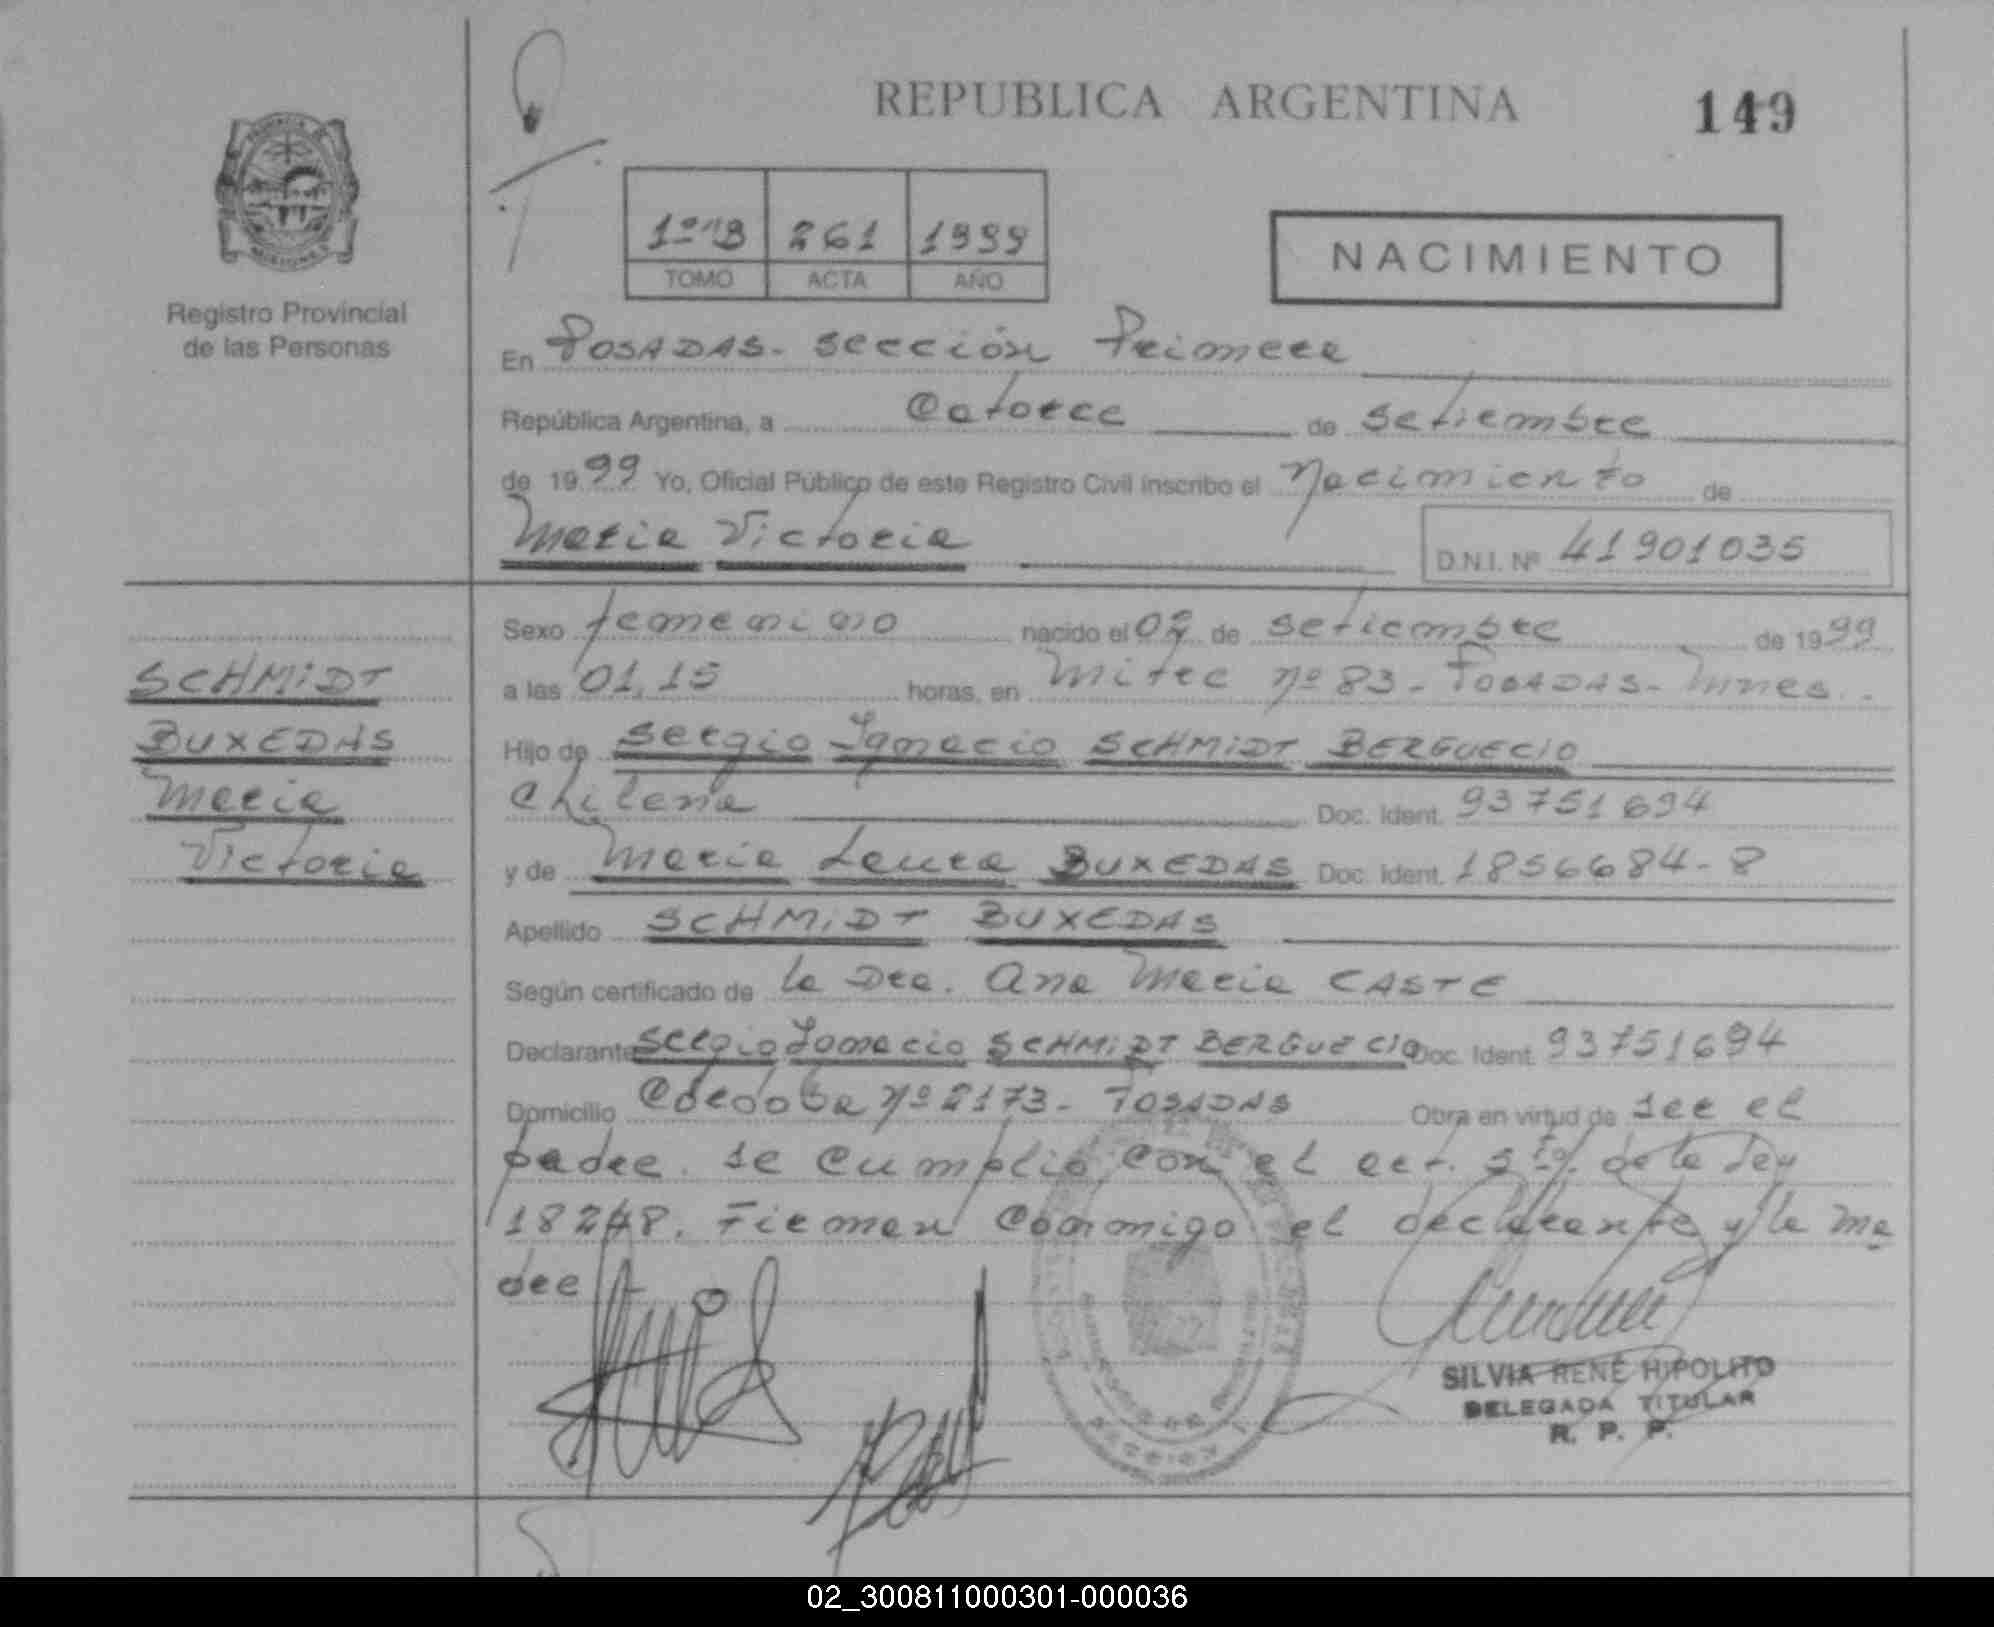 REPUBLICA ARGENTINA
149
1º "B 261 1999
TOMO ACTA AÑO
NACIMIENTO
Registro Provincial
de las Personas
En POSADAS - sección Primera
República Argentina, a Catorce de setiembre
de 1999 Yo, Oficial Público de este Registro Civil inscribo el Nacimiento de
Maria Victoria
D.N.I. Nº 41901035
SCHMIDT
BUXEDAS
Maria
Victoria
Sexo femenino nacido el de setiembre de 1999
a las 01,15 horas, en Mitre nº 83 - POSADAS - Mnes. -
Hijo de Sergio Ignacio SCHMIDT BERGUECIO
Chilena Doc. Ident. 93751694
y de Maria Laura BUXEDAS Doc. Ident. 1856684-8
Apellido SCHMIDT BUXEDAS
Según certificado de la Dra. Ana Maria CASTE
Declarante Sergio Ignacio SCHMIDT BERGUECIO Doc. Ident. 93751694
Domicilio Córdoba nº 2173 - POSADAS Obra en virtud de ser el
padre. se cumplió con el art. 5to. de la Ley
18248. Firman conmigo el declarante y la ma
dre
SILVIA RENÉ HIPOLITO
DELEGADA TITULAR
R. P. P.
02_300811000301-000036